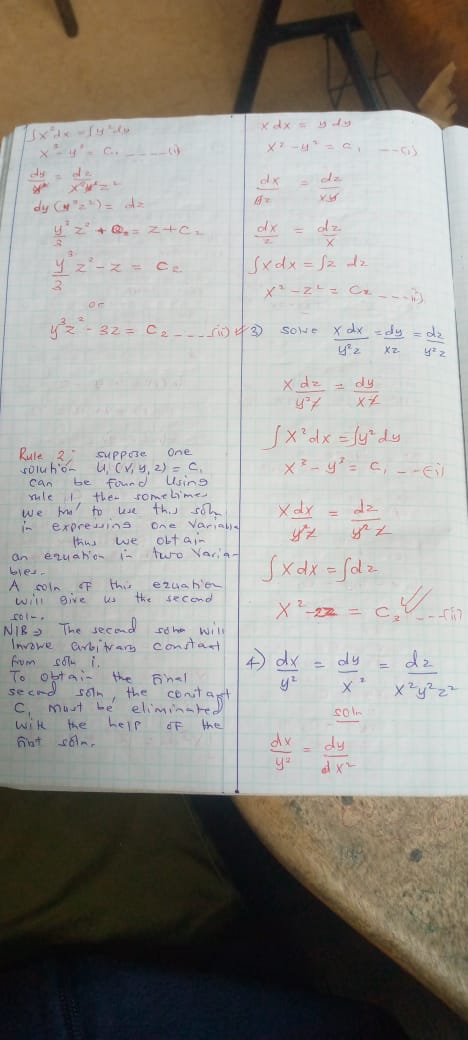 ∫x²dx = ∫y²dy
x³ - y³ = C₁ ---- (i)
dy/x² = dz/x²y²z²
dy (y²z²) = dz
y³/3 z² + = z + C₂
y³/3 z² - z = C₂
or
y³z² - 3z = C₂ --- (ii)
Rule 2; suppose one
solution U₁ (x, y, z) = C₁
can be found Using
rule 1 then sometimes
we to use this soln
in expressing one variable
thus we obtain
an equation in two Varia-
bles.
A soln of this equation
will give us the second
soln.
N/B → The second soln will
Involve arbitrary constant
from soln i.
To obtain the final
second soln, the constant
C₁ must be eliminated
with the help of the
first soln.
x dx = y dy
x² - y² = C₁ --- (i)
dx/yz = dz/xy
dx/z = dz/x
∫x dx = ∫z dz
x² - z² = C₂ --- ii)
3) solve x dx/y²z = dy/xz = dz/y²z
x dz/y²z = dy/xz
∫x²dx = ∫y²dy
x³ - y³ = C₁ --- (i)
x dx/y²z = dz/y²z
∫x dx = ∫dz
x² - 2z = C₂ --- (ii)
4) dx/y² = dy/x² = dz/x²y²z²
soln
dx/y² = dy/dx²